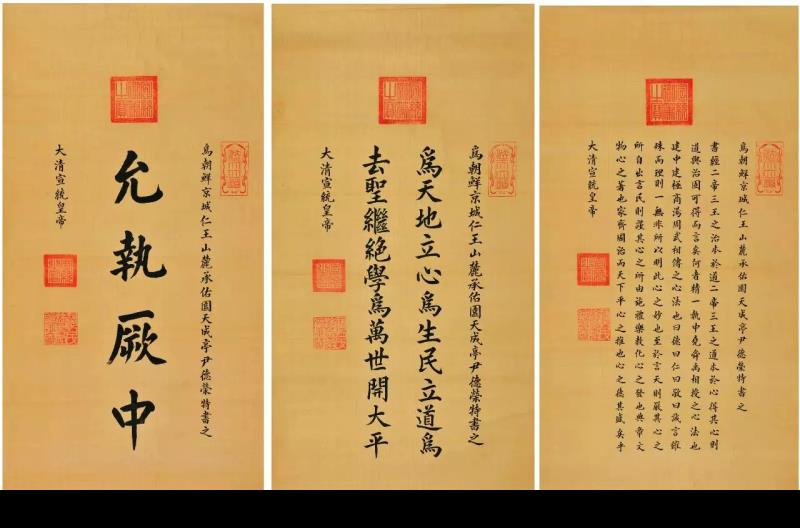 爲朝鮮京城仁王山麓承佑園天成亭尹德榮特書之
允執厥中
大清宣統皇帝
爲朝鮮京城仁王山麓承佑園天成亭尹德榮特書之
爲天地立心爲生民立道爲
去聖繼絕學爲萬世開大平
大清宣統皇帝
爲朝鮮京城仁王山麓承佑園天成亭尹德榮特書之
書經二帝三王之治本於道二帝三王之道本於心得其心則
道與治固可得而言矣何者精一執中堯舜禹相授之心法也
建中建極商湯周武相傳之心法也曰德曰仁曰敬曰誠言雖
殊而理則一無非所以明此心之妙也至於言天則嚴其心之
所自出言民則謹其心之所由施禮樂教化心之發也典章文
物心之著也家齊國治而天下平心之推也心之德其盛矣乎
大清宣統皇帝